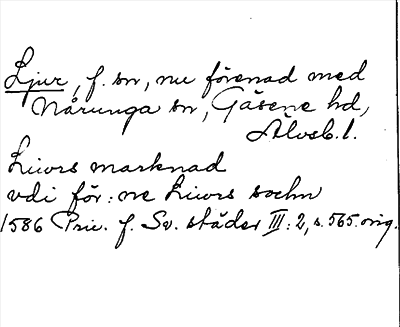 Ljur, f. sn, nu förenad med
Nårunga sn, Gäsene hd,
Älvsb. l.
Liuors marknad
vdi för:ne Liuors sochn
1586 Priv. f. Sv. städer III:2, s. 565. orig.